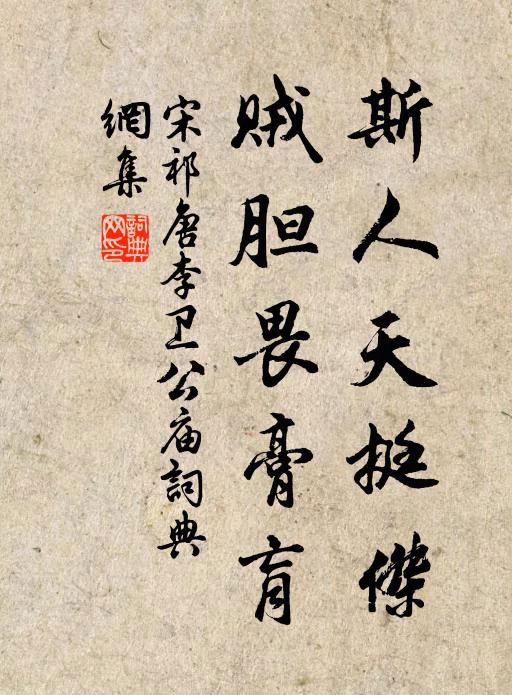 斯人天挺傑
贼胆畏膏肓
宋祁唐李卫公庙詞典
網集
詞典
网印